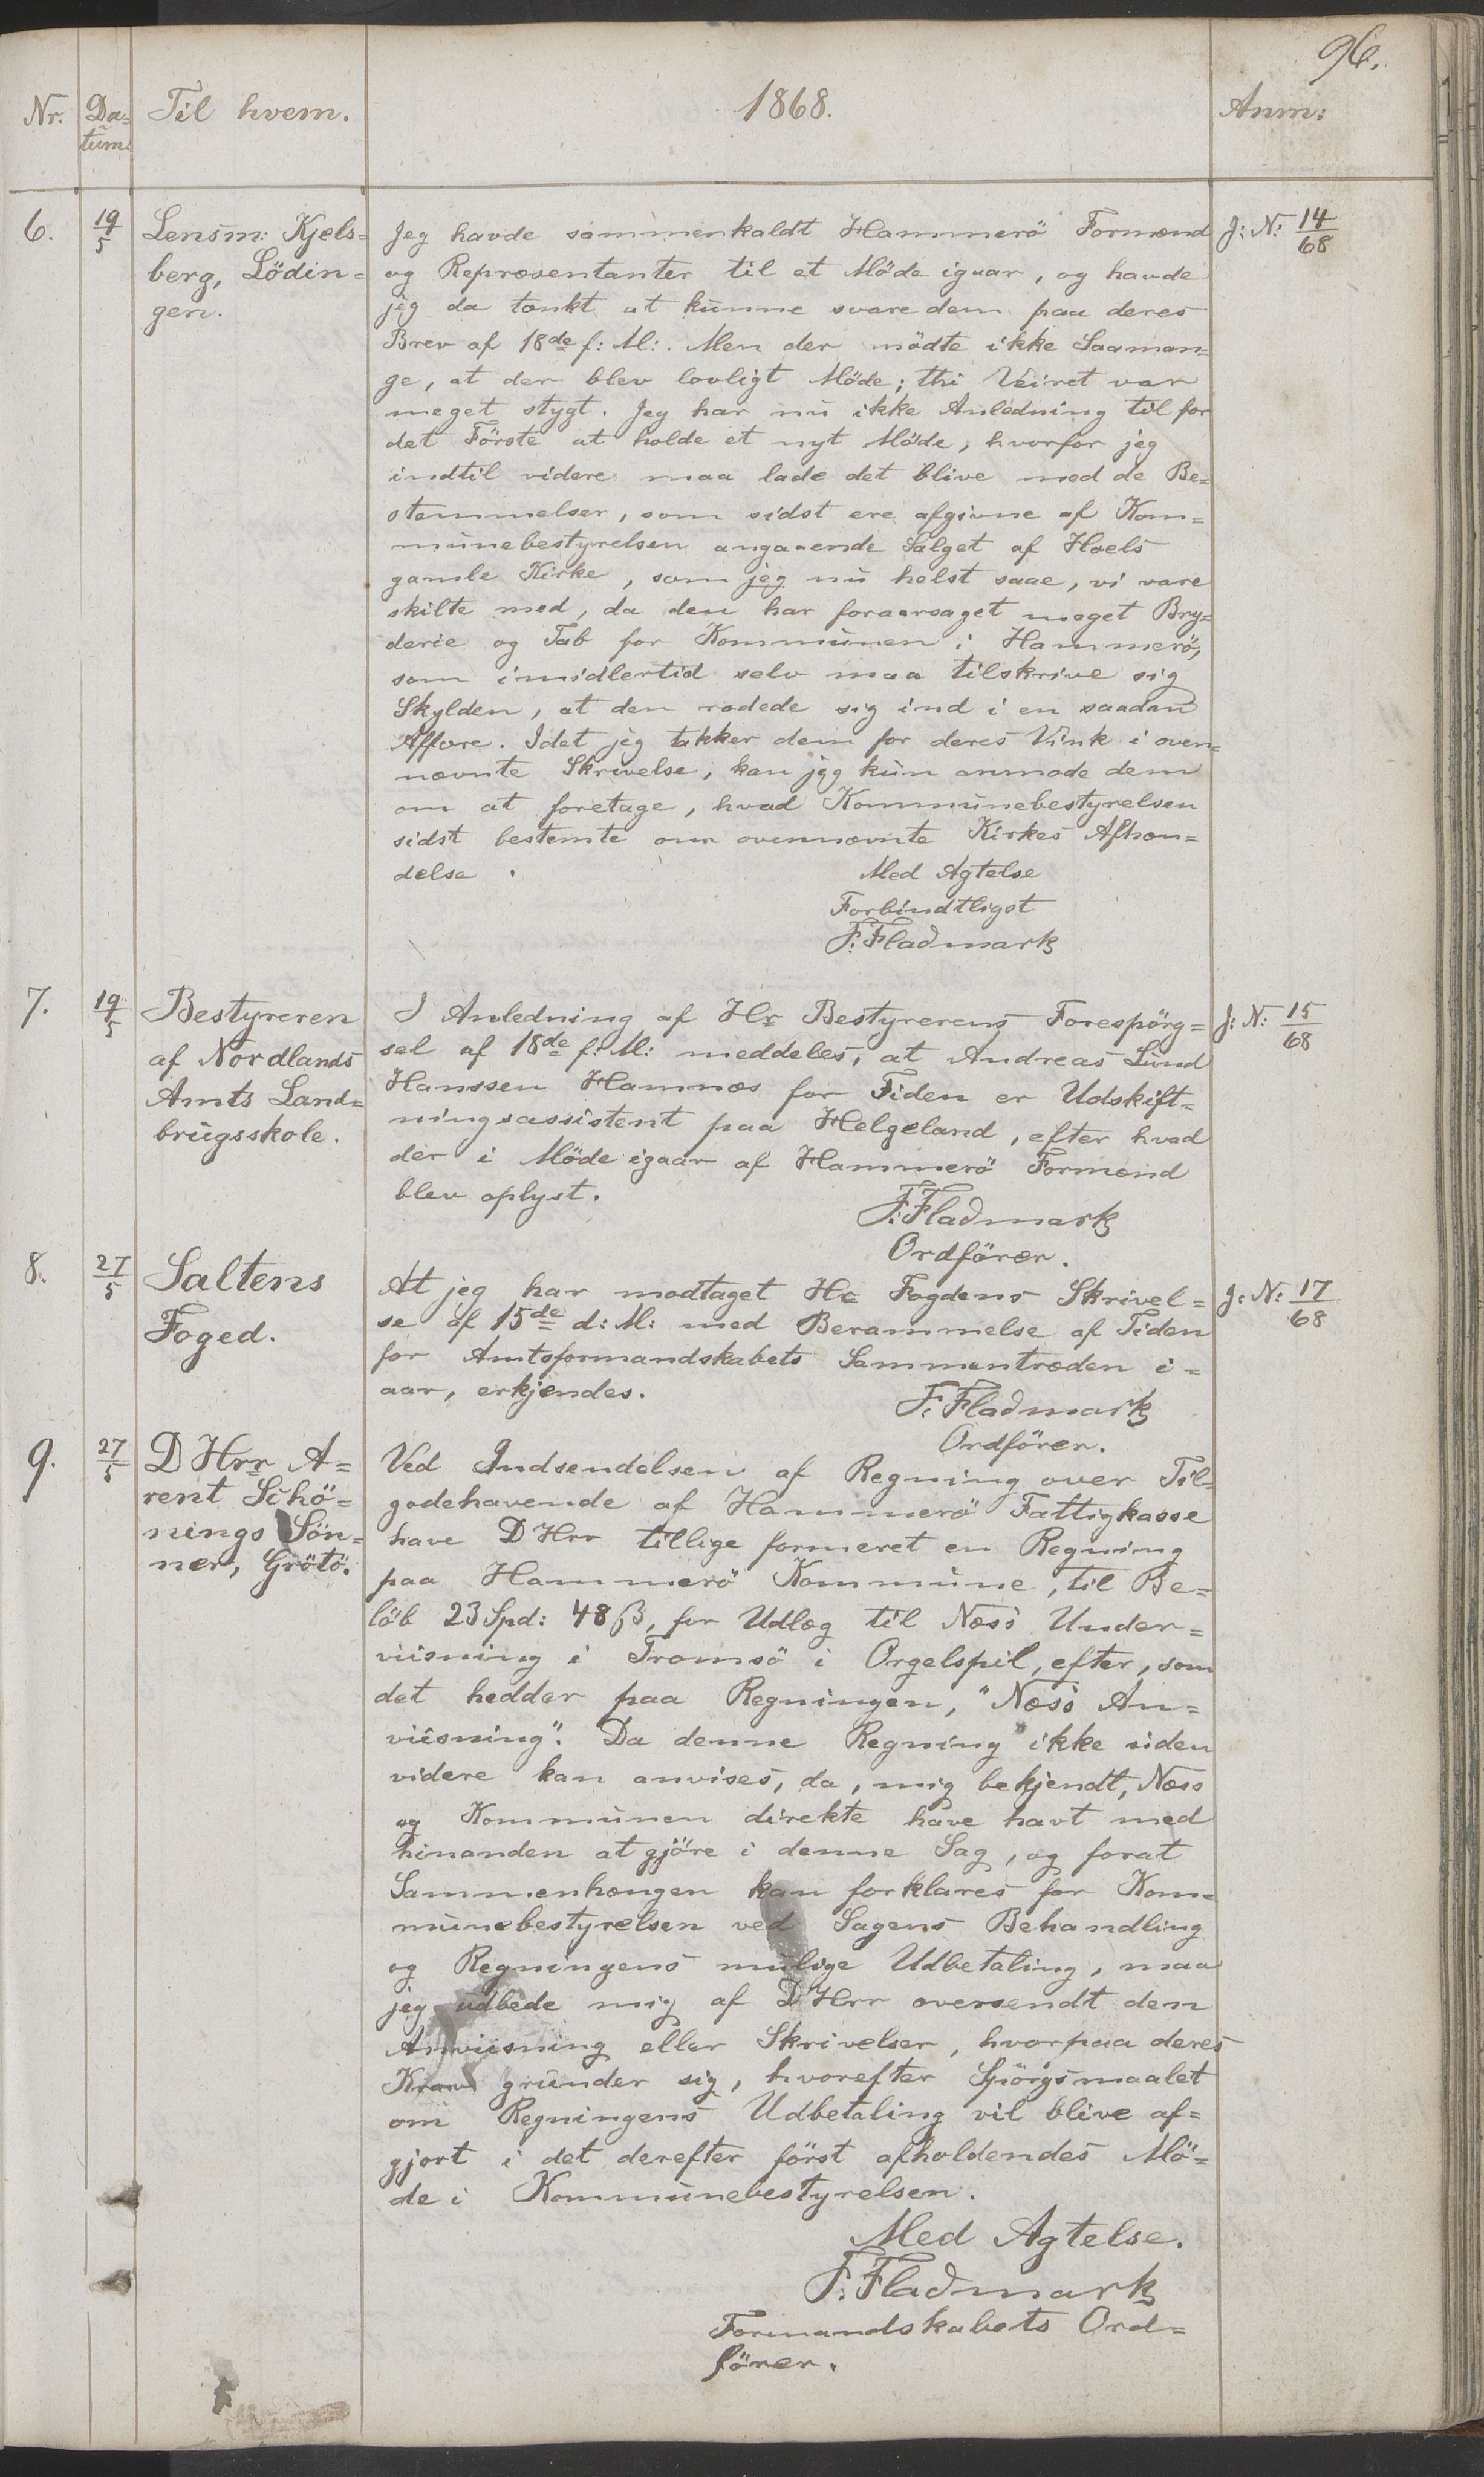 96.
Nr. Da= Til hvem. 1868. Anm:
tum.
6. 19/5 Lensm: Kjels= Jeg havde sammenkaldt Hammerö Formænd J: N: 14/68
berg, Lödin= og Repræsentanter til et Möde igaar, og havde
gen. jeg da tænkt at kunne svare dem paa deres
Brev af 18de f: M:. Men der mödte ikke Saaman=
ge, at der blev lovligt Möde; thi Veiret var
meget stygt. Jeg har nu ikke Anledning til for
det Förste at holde et nyt Möde, hvorfor jeg
indtil videre maa lade det blive med de Be=
stemmelser, som sidst ere afgivne af Kom=
munebestyrelsen angaaende Salget af Hoels
gamle Kirke, som jeg nu helst saae, vi vare
skilte med, da den har foraarsaget meget Bry=
derie og Tab for Kommunen i Hammerö,
som imidlertid selv maa tilskrive sig
Skylden, at den rodede sig ind i en saadan
Affære. Idet jeg takker dem for deres Vink i oven=
nævnte Skrivelse, kan jeg kun anmode dem
om at foretage, hvad Kommunebestyrelsen
sidst bestemte om ovennævnte Kirkes Afhæn=
delse.
Med Agtelse
Forbindtligst
F. Fladmark
7. 19/5 Bestyreren I Anledning af Hr Bestyrerens Forespörg= J: N: 15/68
af Nordlands sel af 18de f: M: meddeles, at Andreas Lund
Amts Land= Hanssen Hamnæs for Tiden er Udskift=
brugsskole. ningsassistent paa Helgeland, efter hvad
der i Möde igaar af Hammerö Formænd
blev oplyst.
F. Fladmark
Ordförer.
8. 27/5 Saltens At jeg har modtaget Hr Fogdens Skrivel= J: N: 17/68
Foged. se af 15de d: M: med Berammelse af Tiden
for Amtsformandskabets Sammentræden i=
aar, erkjendes.
F. Fladmark
Ordförer.
9. 27/5 D Hrr A= Ved Indsendelsen af Regning over Til=
rent Schö= godehavende af Hammerö Fattigkasse
nings Sön= have D Hrr tillige formeret en Regning
ner, Grötö. paa Hammerö Kommune, til Be=
löb 23 Spd: 48 ß, for Udlæg til Næss Under=
viisning i Tromsö i Orgelspil, efter, som
det hedder paa Regningen, "Næss An=
viisning". Da denne Regning ikke uden
videre kan anvises, da, mig bekjendt, Næss
og Kommunen direkte have havt med
hinanden at gjöre i denne Sag, og forat
Sammenhængen kan forklares for Kom=
munebestyrelsen ved Sagens Behandling
og Regningens mulige Udbetaling, maa
jeg udbede mig af D Hrr oversendt den
Anviisning eller Skrivelser, hvorpaa deres
Krav grunder sig, hvorefter Spörgsmaalet
om Regningens Udbetaling vil blive af=
gjort i det derefter först afholdendes Mö=
de i Kommunebestyrelsen.
Med Agtelse.
F. Fladmark
Formandskabets Ord=
förer.